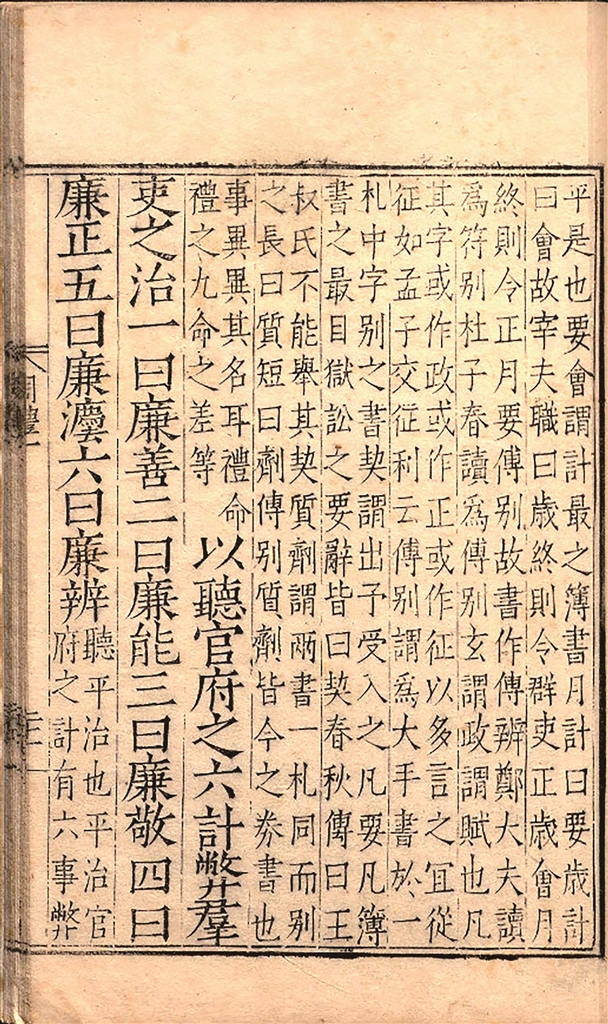 平是也要會謂計最之簿書月計曰要歲計
曰會故宰夫職曰歲終則令群吏正歲會月
終則令正月要傅別故書作傅辨鄭大夫讀
爲符別杜子春讀爲傅別玄謂政謂賦也凡
其字或作政或作正或作征以多言之冝從
征如孟子交征利云傅別謂爲大手書於一
札中字別之書契謂出予受入之凡要凡簿
書之最目獄訟之要辭皆曰契春秋傳曰王
叔氏不能舉其契質劑謂兩書一札同而別
之長曰質短曰劑傅別質劑皆今之券書也
事異異其名耳禮命
禮之九命之差等
以聽官府之六計弊羣
吏之治一曰廉善二曰廉能三曰廉敬四曰
廉正五曰廉灋六曰廉辨
聽平治也平治官
府之計有六事弊